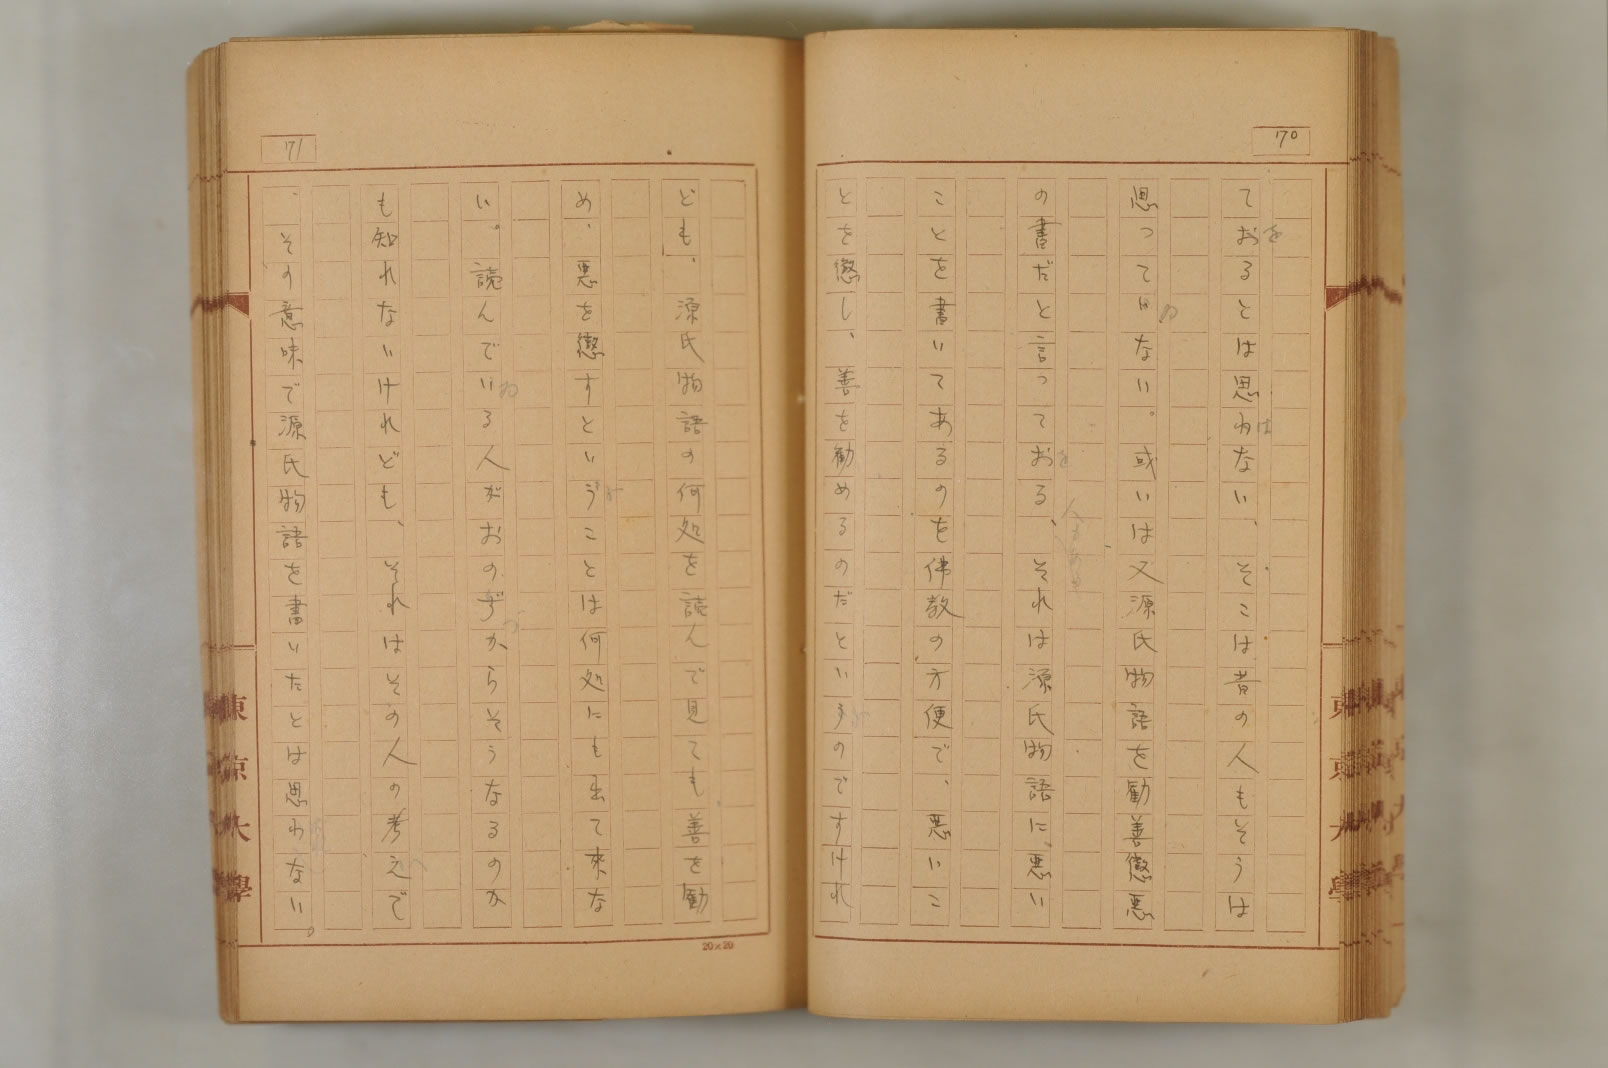 170
ておるとは思わない、そこは昔の人もそうは
思っていない。或いは又源氏物語を勧善懲悪
の書だと言っておる、それは源氏物語に悪い
ことを書いてあるのを佛教の方便で、悪いこ
とを懲し、善を勧めるのだというのですけれ
71
ども、源氏物語の何処を読んで見ても善を勧
め、悪を懲すということは何処にも出て來な
い。読んでいる人がおのずからそうなるのか
も知れないけれども、それはその人の考えで
、その意味で源氏物語を書いたとは思わない。
20×20
東京大學